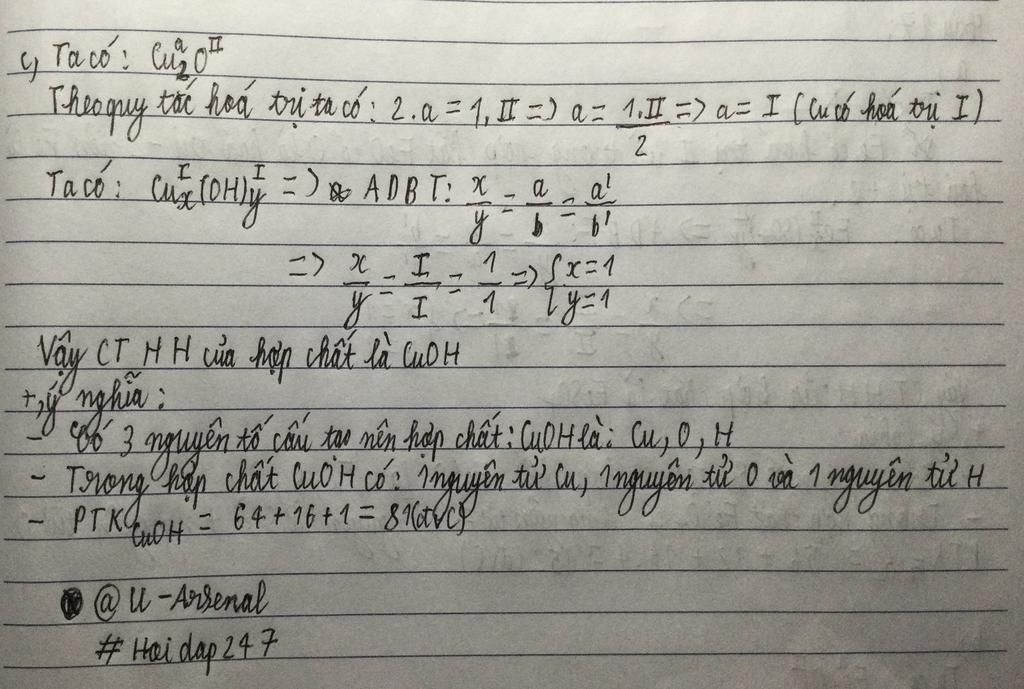 c, Ta có: Cu₂ᵃOᴵᴵ
Theo quy tắc hoá trị ta có: 2.a = 1.II => a = 1.II/2 => a = I (Cu có hoá trị I)
Ta có: Cuₓᴵ(OH)yᴵ => ADBT: x/y = a/b = a'/b'
=> x/y = I/I = 1/1 => { x=1 y=1
Vậy CTHH của hợp chất là CuOH
+, ý nghĩa:
- Có 3 nguyên tố cấu tạo nên hợp chất: CuOH là: Cu, O, H
- Trong hợp chất CuOH có: 1 nguyên tử Cu, 1 nguyên tử O và 1 nguyên tử H
- PTK CuOH = 64 + 16 + 1 = 81(đvC)
@U-Arsenal
# Hoidap247